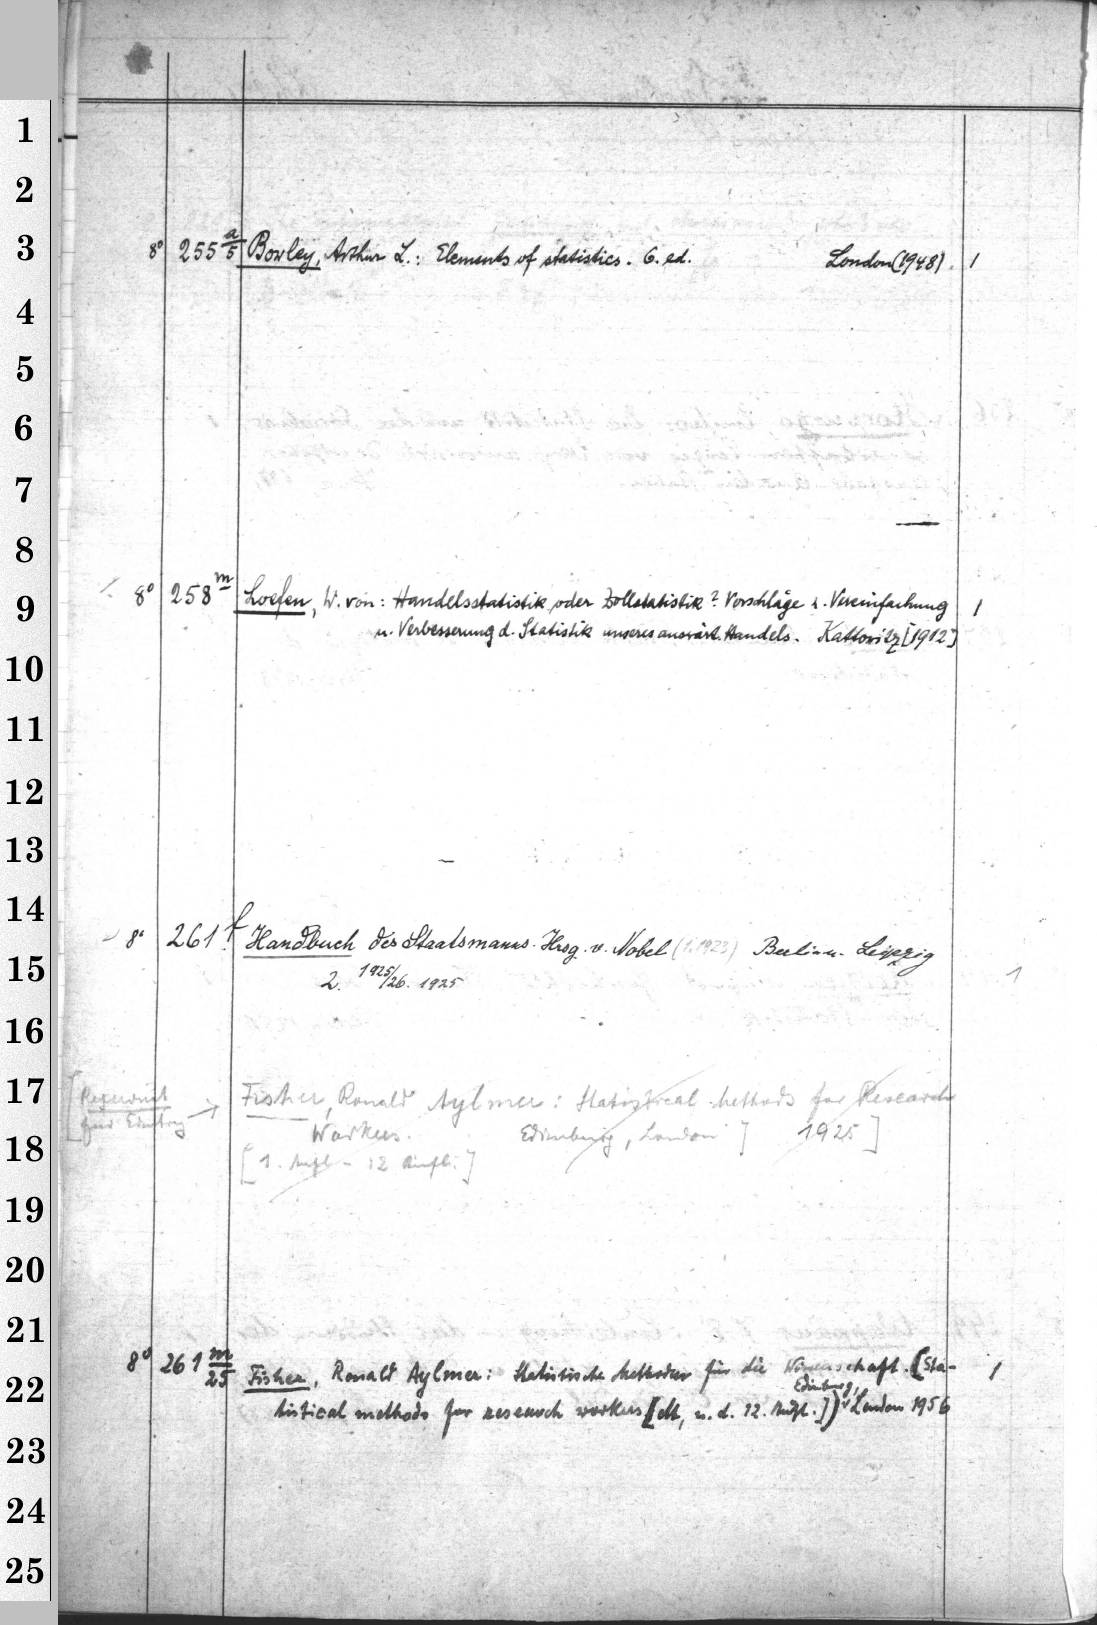 1
2
3 8° 255 a/5 Bowley, Arthur L.: Elements of statistics. 6. ed. London (1948). 1
4
5
6
7
8
9 8° 258 m Loefen, W. von: Handelsstatistik oder Zollstatistik? Vorschläge z. Vereinfachung 1
u. Verbesserung d. Statistik unseres auswärt. Handels. Kattowitz [1912]
10
11
12
13
14
8° 261 f Handbuch des Staatsmanns. Hrsg. v. Nobel (1.1923) Berlin u. Leipzig
15 2. 1925/26. 1925 1
16
17 Fisher, Ronald Aylmer: Statistical Methods for Research
für Edinbg Workers. Edinburg, London] 1925]
18 [1. Aufl - 12 Aufl.]
19
20
21
8° 261 m/25 Fisher, Ronald Aylmer: Statistische Methoden für die Wissenschaft. (Sta- 1
22 Edinburg,
tistical methods for research workers [dt, n. d. 12. Aufl.]) London 1956
23
24
25